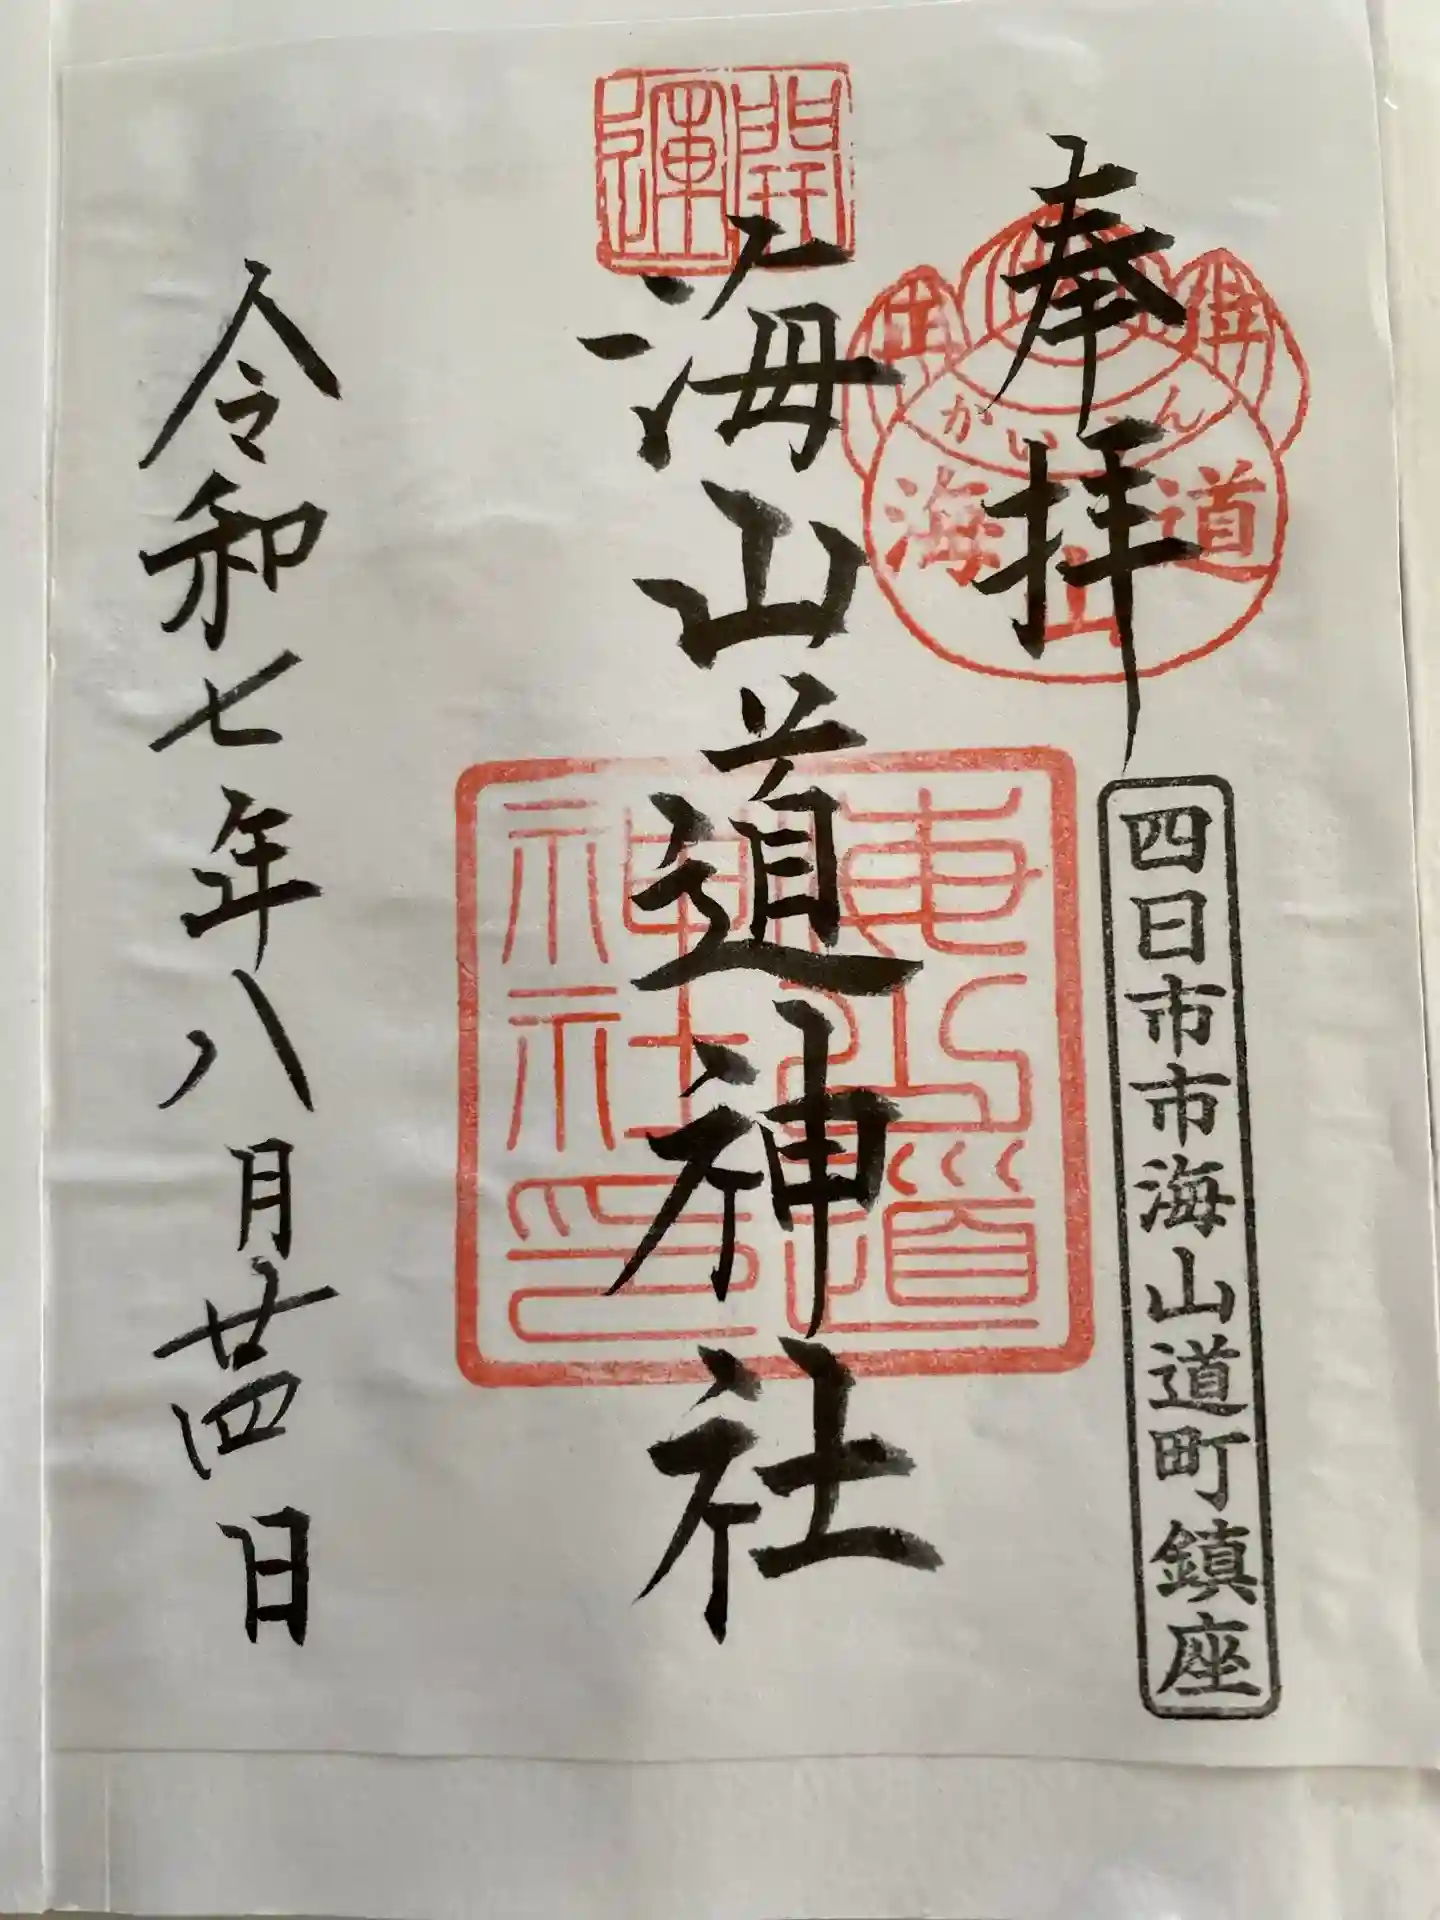 奉拝
海
山
道
四日市市海山道町鎮座
開運
海山道神社
海山道神社印
令和七年八月廿四日